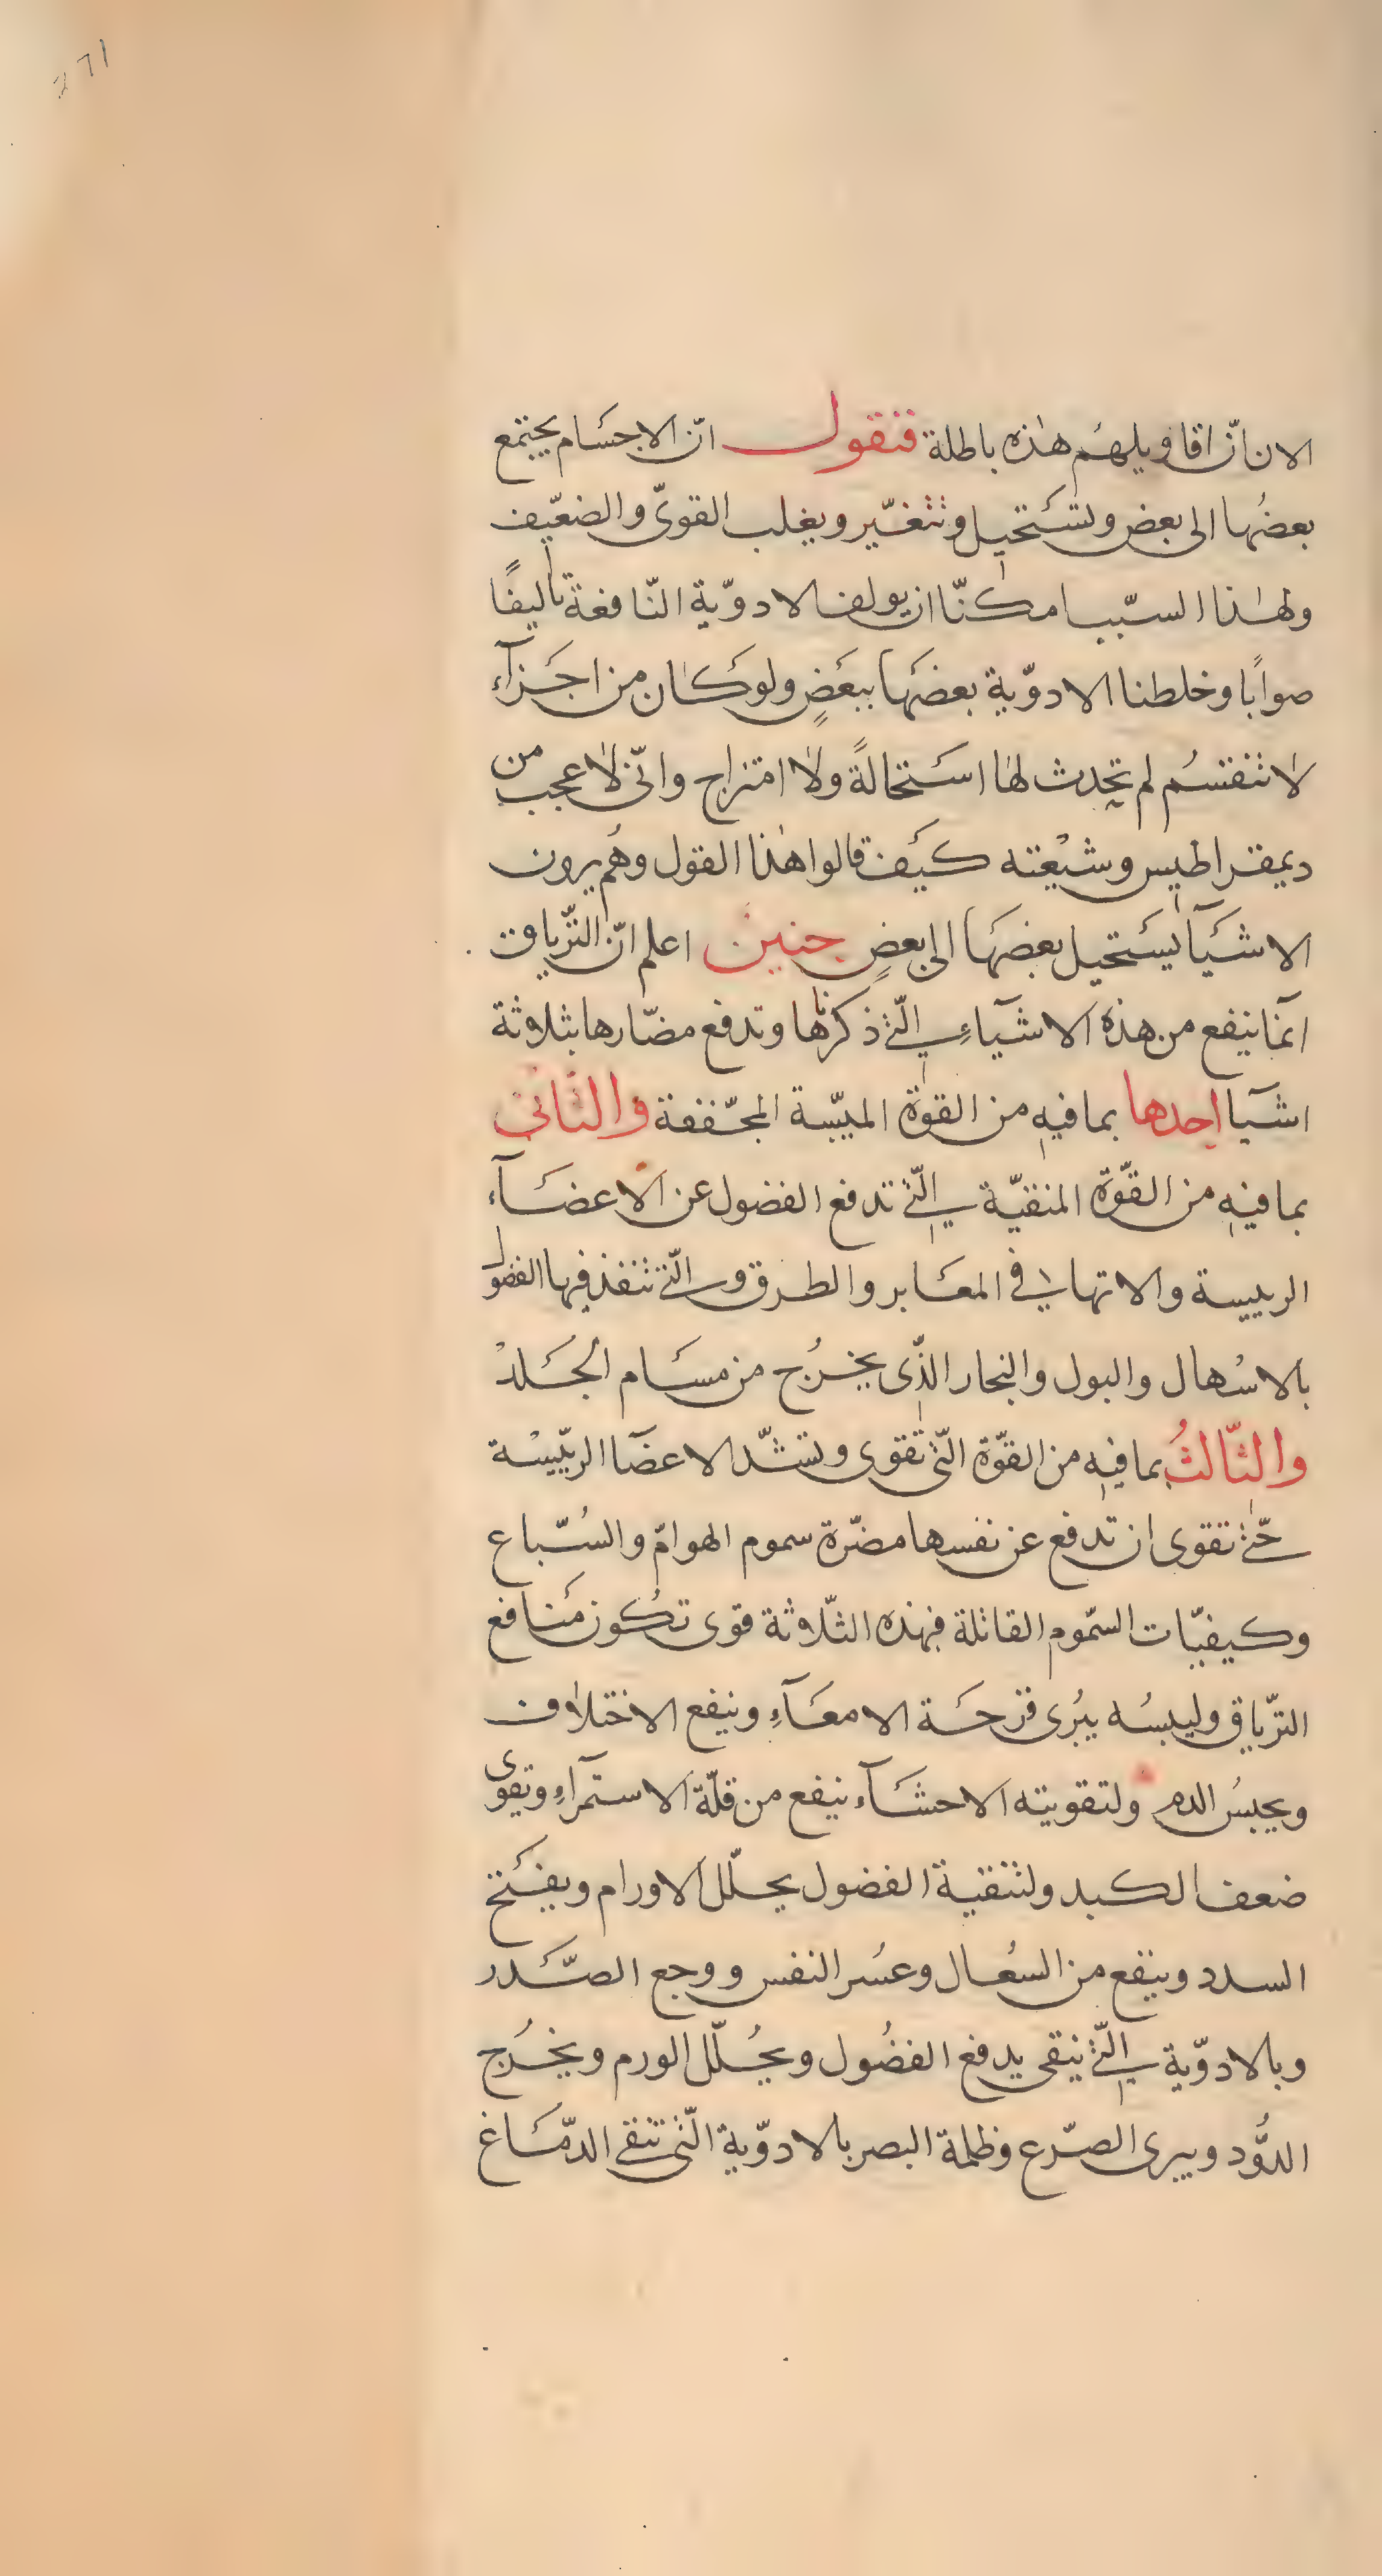 الان انّ اقاويلهُم هٰذه باطلة فنقول انّ الاجسَام يجتمع
بعضُها الى بعض وتستَحيل وتتغيّر ويغلب القوىّ والضعّيف
ولهٰذا السبّب امكنّا ان يولف الادوّية النّافعة تاليفًا
صوابًا وخلطنا الادوّية بعضَها ببعَضٍ ولو كَان من اجَزآء
لا تنقسُم لم تحِدث لها استَحالةً ولا امتزاج وانّى لاعجب من
ديمقراطيس وشيْعته كيَف قالوا هٰذا القول وهُم يرون
الاشَيآ يستَحيل بعضهَا الى بعضٍ حنين اعلم انّ التّرياق
انمّا ينفع من هذه الاشيآءِ الّتى ذكرناها وتدفع مضّارها بثلاوثة
اشيآ احدها بما فيه من القوة الميبّسة المجّففة والثّانى
بما فيه من القّوة المنقيّة الّتى تدفع الفضول عن الاعضَآء
الرييسة والاتهاب فى المعَابر والطرق والّتى تنفذ فيها الفضول
بالاسْهال والبول والبخار الذّى يخرُج من مسَام الجَلدْ
والثّالثُ بما فيه من القوّة الّتى تقوى وتشدّ الاعضَا الريّيسْة
حّتى تقوى ان تدفع عن نفسها مضرّة سموم الهوامّ والسُبّاع
وكيفيّات السّموم القاتلة فهذه الثّلاوثة قوى تكُون مَنافع
الترّياق وليبسُه يبُرى قرحَة الامعَآءِ وينفع الاختلاف
ويحبسُ الدم ولتقويته الاحشَآء ينفع من قلّة الاستمرآءِ وتقوى
ضعف الكبد ولتنقية الفضول يحلّل الاورام ويفتَح
السدد وينفع من السُعال وعسُر النفس ووجع الصّدَر
وبالادوّية الّتى ينقى يدفع الفضُول ويحُلّل الورم ويخرُج
الدُّود ويبرى الصرّع وظلمة البصر بالادوّية الّتى تنقى الدمّاغ